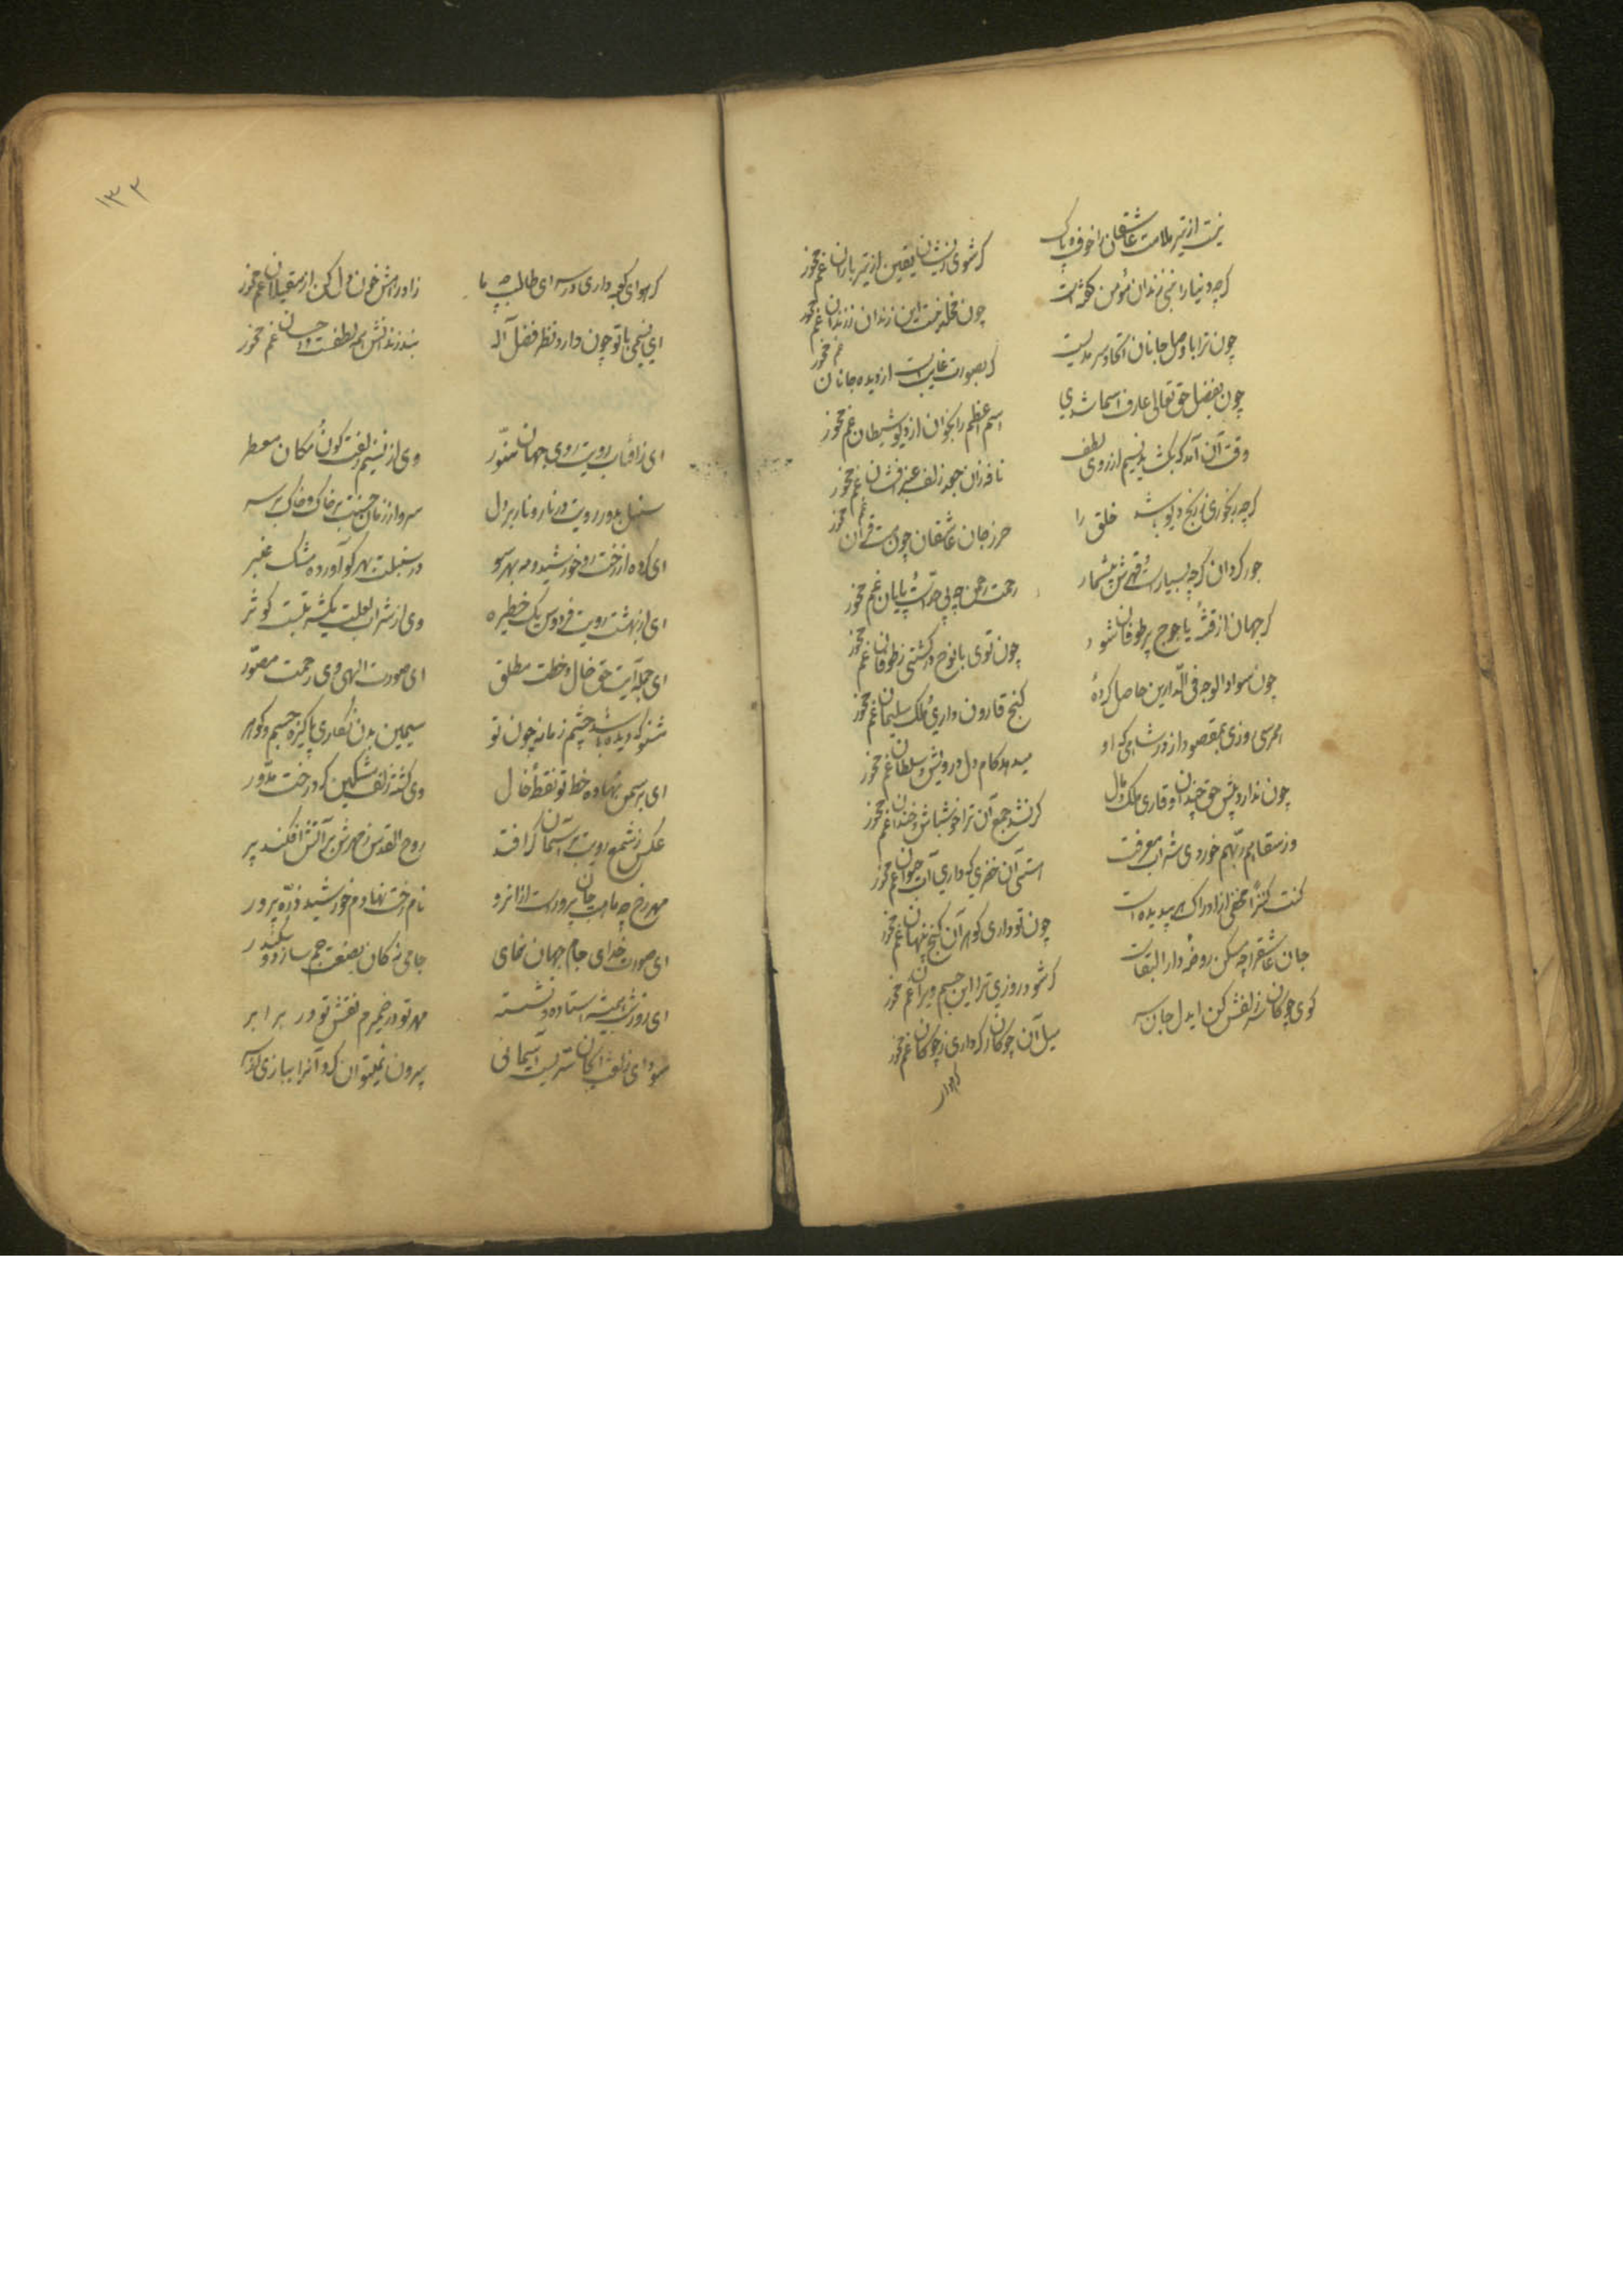 نیست از تیر ملامت عاشقان را خوف و باک
گر شوی نیشان یقین از تیر باران غم مخور
گرچه دنیا را نبی زندان مؤمن گفته است
چون مخلد نیست این زندان ز زندان غم مخور
چون ترا با وصل جانان اتحاد سرمدیست
گر بصورت غایبست از دیده جانان غم مخور
چون بفضل حق تعالی عارف اسما شدی
اسم اعظم را بخوان از دیو و شیطان غم مخور
وقت آن آمد که بگشاید نسیم از روی لطف
نافه زان جعد زلف عنبر افشان غم مخور
گرچه رنجوری ز رنج دیو باشد خلق را
حرز جان عاشقان چون هست قرآن غم مخور
جور گردان گرچه بسیارست و قهرش بیشمار
رحمت رحمن چو بی حدست و پایان غم مخور
گر جهان از فتنه یاجوج پر طوفان شود
چون توی با نوح در کشتی ز طوفان غم مخور
چون سواد الوجه فی الدارین حاصل کرده
گنج قارون داری و ملک سلیمان غم مخور
هم رسی روزی بمقصود از در شاهی که او
میدهد کام دل درویش و سلطان غم مخور
چون ندارد پیش حق چندان وقاری ملک و مال
گر نشد جمع آن ترا خوش باش و خندان غم مخور
وز سقاهم ربهم خوردی شراب معرفت
استی آن خضری که داری آب حیوان غم مخور
کنت کنزا مخفی از ادراک هر بی دیده است
چون تو داری گوهر آن گنج پنهان غم مخور
جان عاشق را چو مسکن روضه دار البقاست
گر شود روزی ترا این جسم ویران غم مخور
گوی چوگان سر زلفش کن ایدل جان و سر
میل آن چوگان گر داری ز چوگان غم مخور
گر هوای
۱۳۲
گر هوای کعبه داری در سر ای طالب چو ما
زاد راهش خون دل کن از مغیلان غم مخور
ای نسیمی با تو چون دارد نظر فضل اله
بند زندانش همه لطفست و احسان غم مخور
ای ز آفتاب رویت روی جهان منور
وی از نسیم زلفت کون و مکان معطر
سنبل بدور رویت در نار و نار بر دل
سرو از زمان حسنت بر خاک و خاک بر سر
ای کرده از رخت رو خورشید و مه بهر سو
در سنبلت بهر کو آورده مشک عنبر
ای از بهشت رویت فردوس یک حظیره
وی از شراب لعلت یک شربتست کوثر
ای جمله آیت حق خال و خطت مطلق
ای صورت الهی وی رحمت مصور
نشنو که دیده باشد چشم زمانه چون تو
سیمین بدن نگاری پاکیزه جسم و گوهر
ای بر سمن نهاده خط تو نقطه خال
وی گشته زلف مشکین گرد رخت مدور
عکسی ز شمع رویت بر آسمان گر افتد
روح القدس ز مهرش بر آتش افکند پر
مهر رخ چو ماهت جان پرورست ازانرو
نام رخت نهادم خورشید ذره پرور
ای صورت خدای جام جهان نمای
جامی نه کان بصنعت جم سازد و سکندر
ای روز و شب همیشه استاده و نشسته
مهر تو در ضمیرم نقش تو در برابر
سودای زلفت ایجان سریست آسمانی
بیرون نمیتوان کرد آنرا ببازی از سر